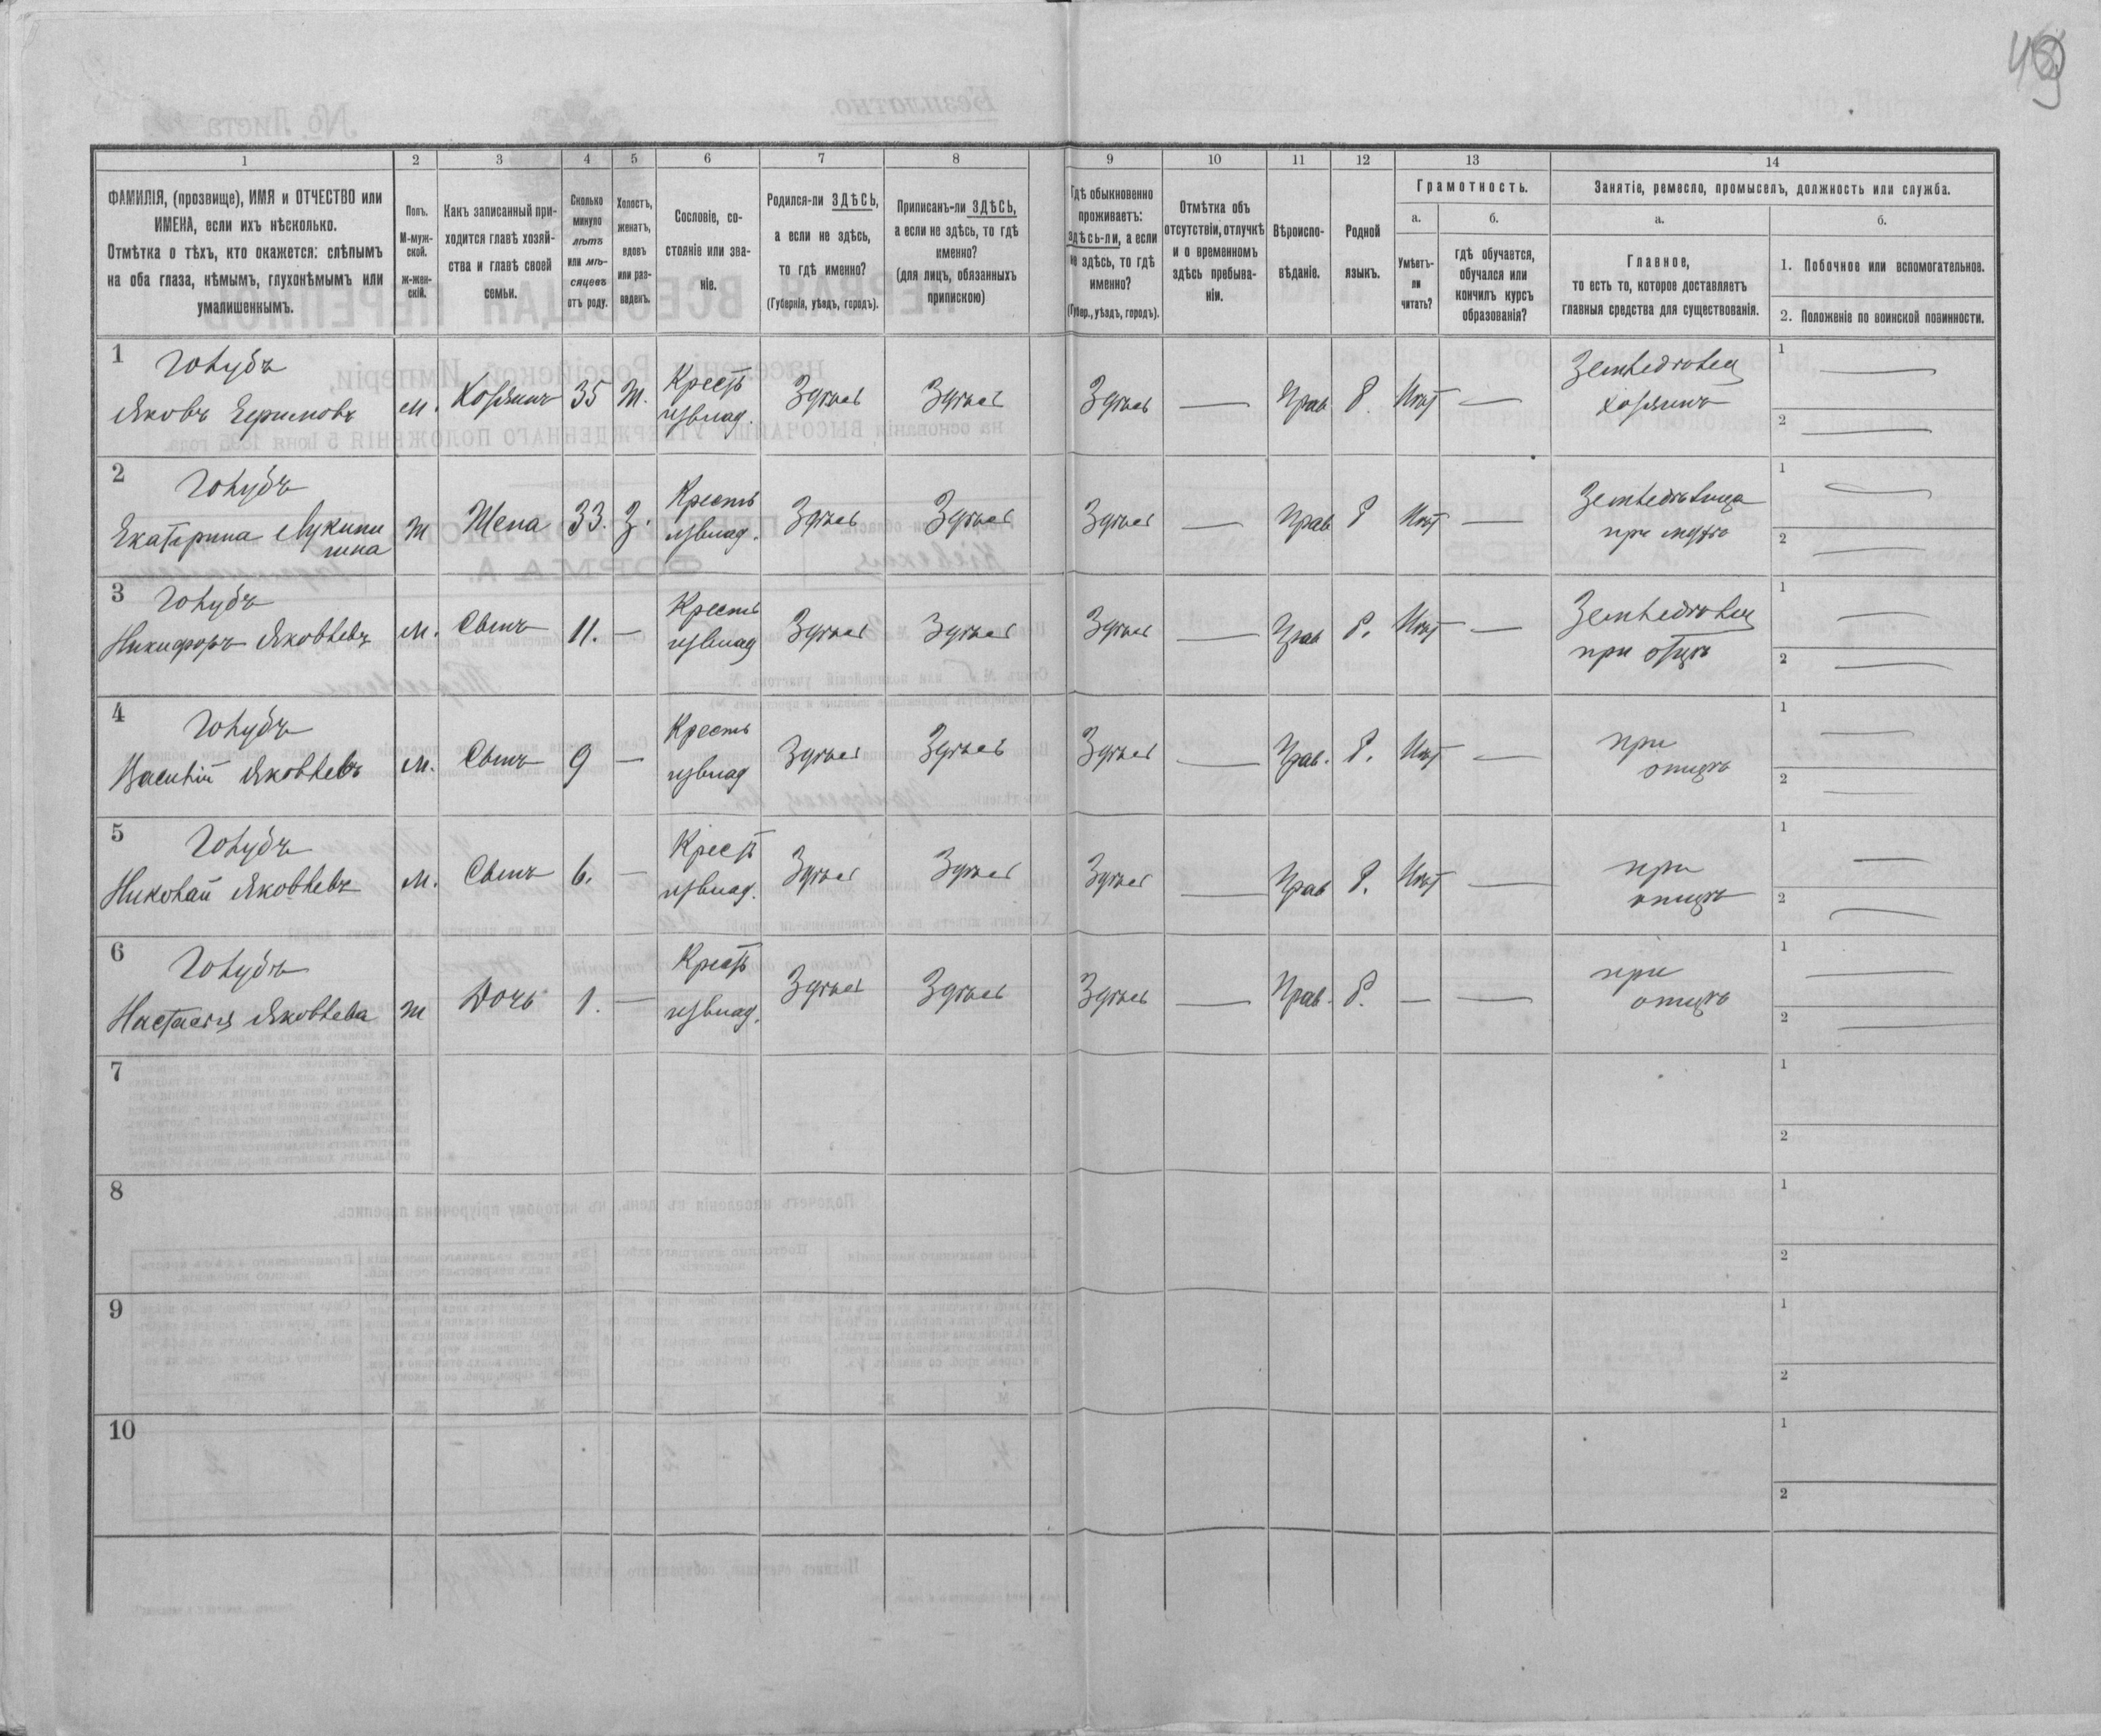 49
1 2 3 4 5 6 7 8 9 10 11 12 13 14
ФАМИЛІЯ, (прозвище), ИМЯ и ОТЧЕСТВО или
ИМЕНА, если ихъ нѣсколько.
Отмѣтка о тѣхъ, кто окажется: слѣпымъ
на оба глаза, нѣмымъ, глухонѣмымъ или
умалишеннымъ.
Полъ.
М-муж-
ской.
ж-жен-
скій.
Какъ записанный при-
ходится главѣ хозяй-
ства и главѣ своей
семьи.
Сколько
минуло
лѣтъ
или мѣ-
сяцевъ
отъ роду.
Холостъ,
женатъ,
вдовъ
или раз-
веденъ.
Сословіе, со-
стояніе или зва-
ніе.
Родился-ли ЗДѢСЬ,
а если не здѣсь,
то гдѣ именно?
(Губернія, уѣздъ, городъ).
Приписанъ-ли ЗДѢСЬ,
а если не здѣсь, то гдѣ
именно?
(для лицъ, обязанныхъ
припискою)
Гдѣ обыкновенно
проживаетъ:
здѣсь-ли, а если
не здѣсь, то гдѣ
именно?
(Губер., уѣздъ, городъ).
Отмѣтка объ
отсутствіи, отлучкѣ
и о временномъ
здѣсь пребыва-
ніи.
Вѣроиспо-
вѣданіе.
Родной
языкъ.
Грамотность.
а. б.
Умѣетъ-
ли
читать?
гдѣ обучается,
обучался или
кончилъ курсъ
образованія?
Занятіе, ремесло, промыселъ, должность или служба.
а. б.
Главное,
то есть то, которое доставляетъ
главныя средства для существованія.
1. Побочное или вспомогательное.
2. Положеніе по воинской повинности.
1 Голубъ Крестъ Земледѣлец 1 —
Яковъ Ефимовъ м. Хозяинъ 35 Ж. извлад. Здѣсь Здѣсь Здѣсь — Прав Р. Нѣт — хозяинъ 2 —
2 Голубъ Кресть Земледѣлица 1 —
Екатерина Ж Жена 33. З. извлад. Здѣсь Здѣсь Здѣсь — Прав Р Нѣт — при мужѣ 2 —
3 Голубъ Кресть Земледѣлец 1 —
Никифоръ Яковлевъ м. Сынъ 11. — извлад Здѣсь Здѣсь Здѣсь — Прав Р. Нѣт — при отцѣ 2 —
4 Голубъ Кресть при 1 —
Василій Яковлевъ м. Сынъ 9 — извлад Здѣсь Здѣсь Здѣсь — Прав. Р. Нѣт — отцѣ 2 —
5 Голубъ Крест при 1 —
Николай Яковлевъ м. Сынъ 6. — извлад. Здѣсь Здѣсь Здѣсь — Прав Р. Нѣт — отцѣ 2 —
6 Голубъ Крестъ при 1 —
Настасія Яковлева Ж Дочь 1. — извлад. Здѣсь Здѣсь Здѣсь — Прав. Р. — — отцѣ 2 —
7 1
2
8 1
2
9 1
2
10 1
2